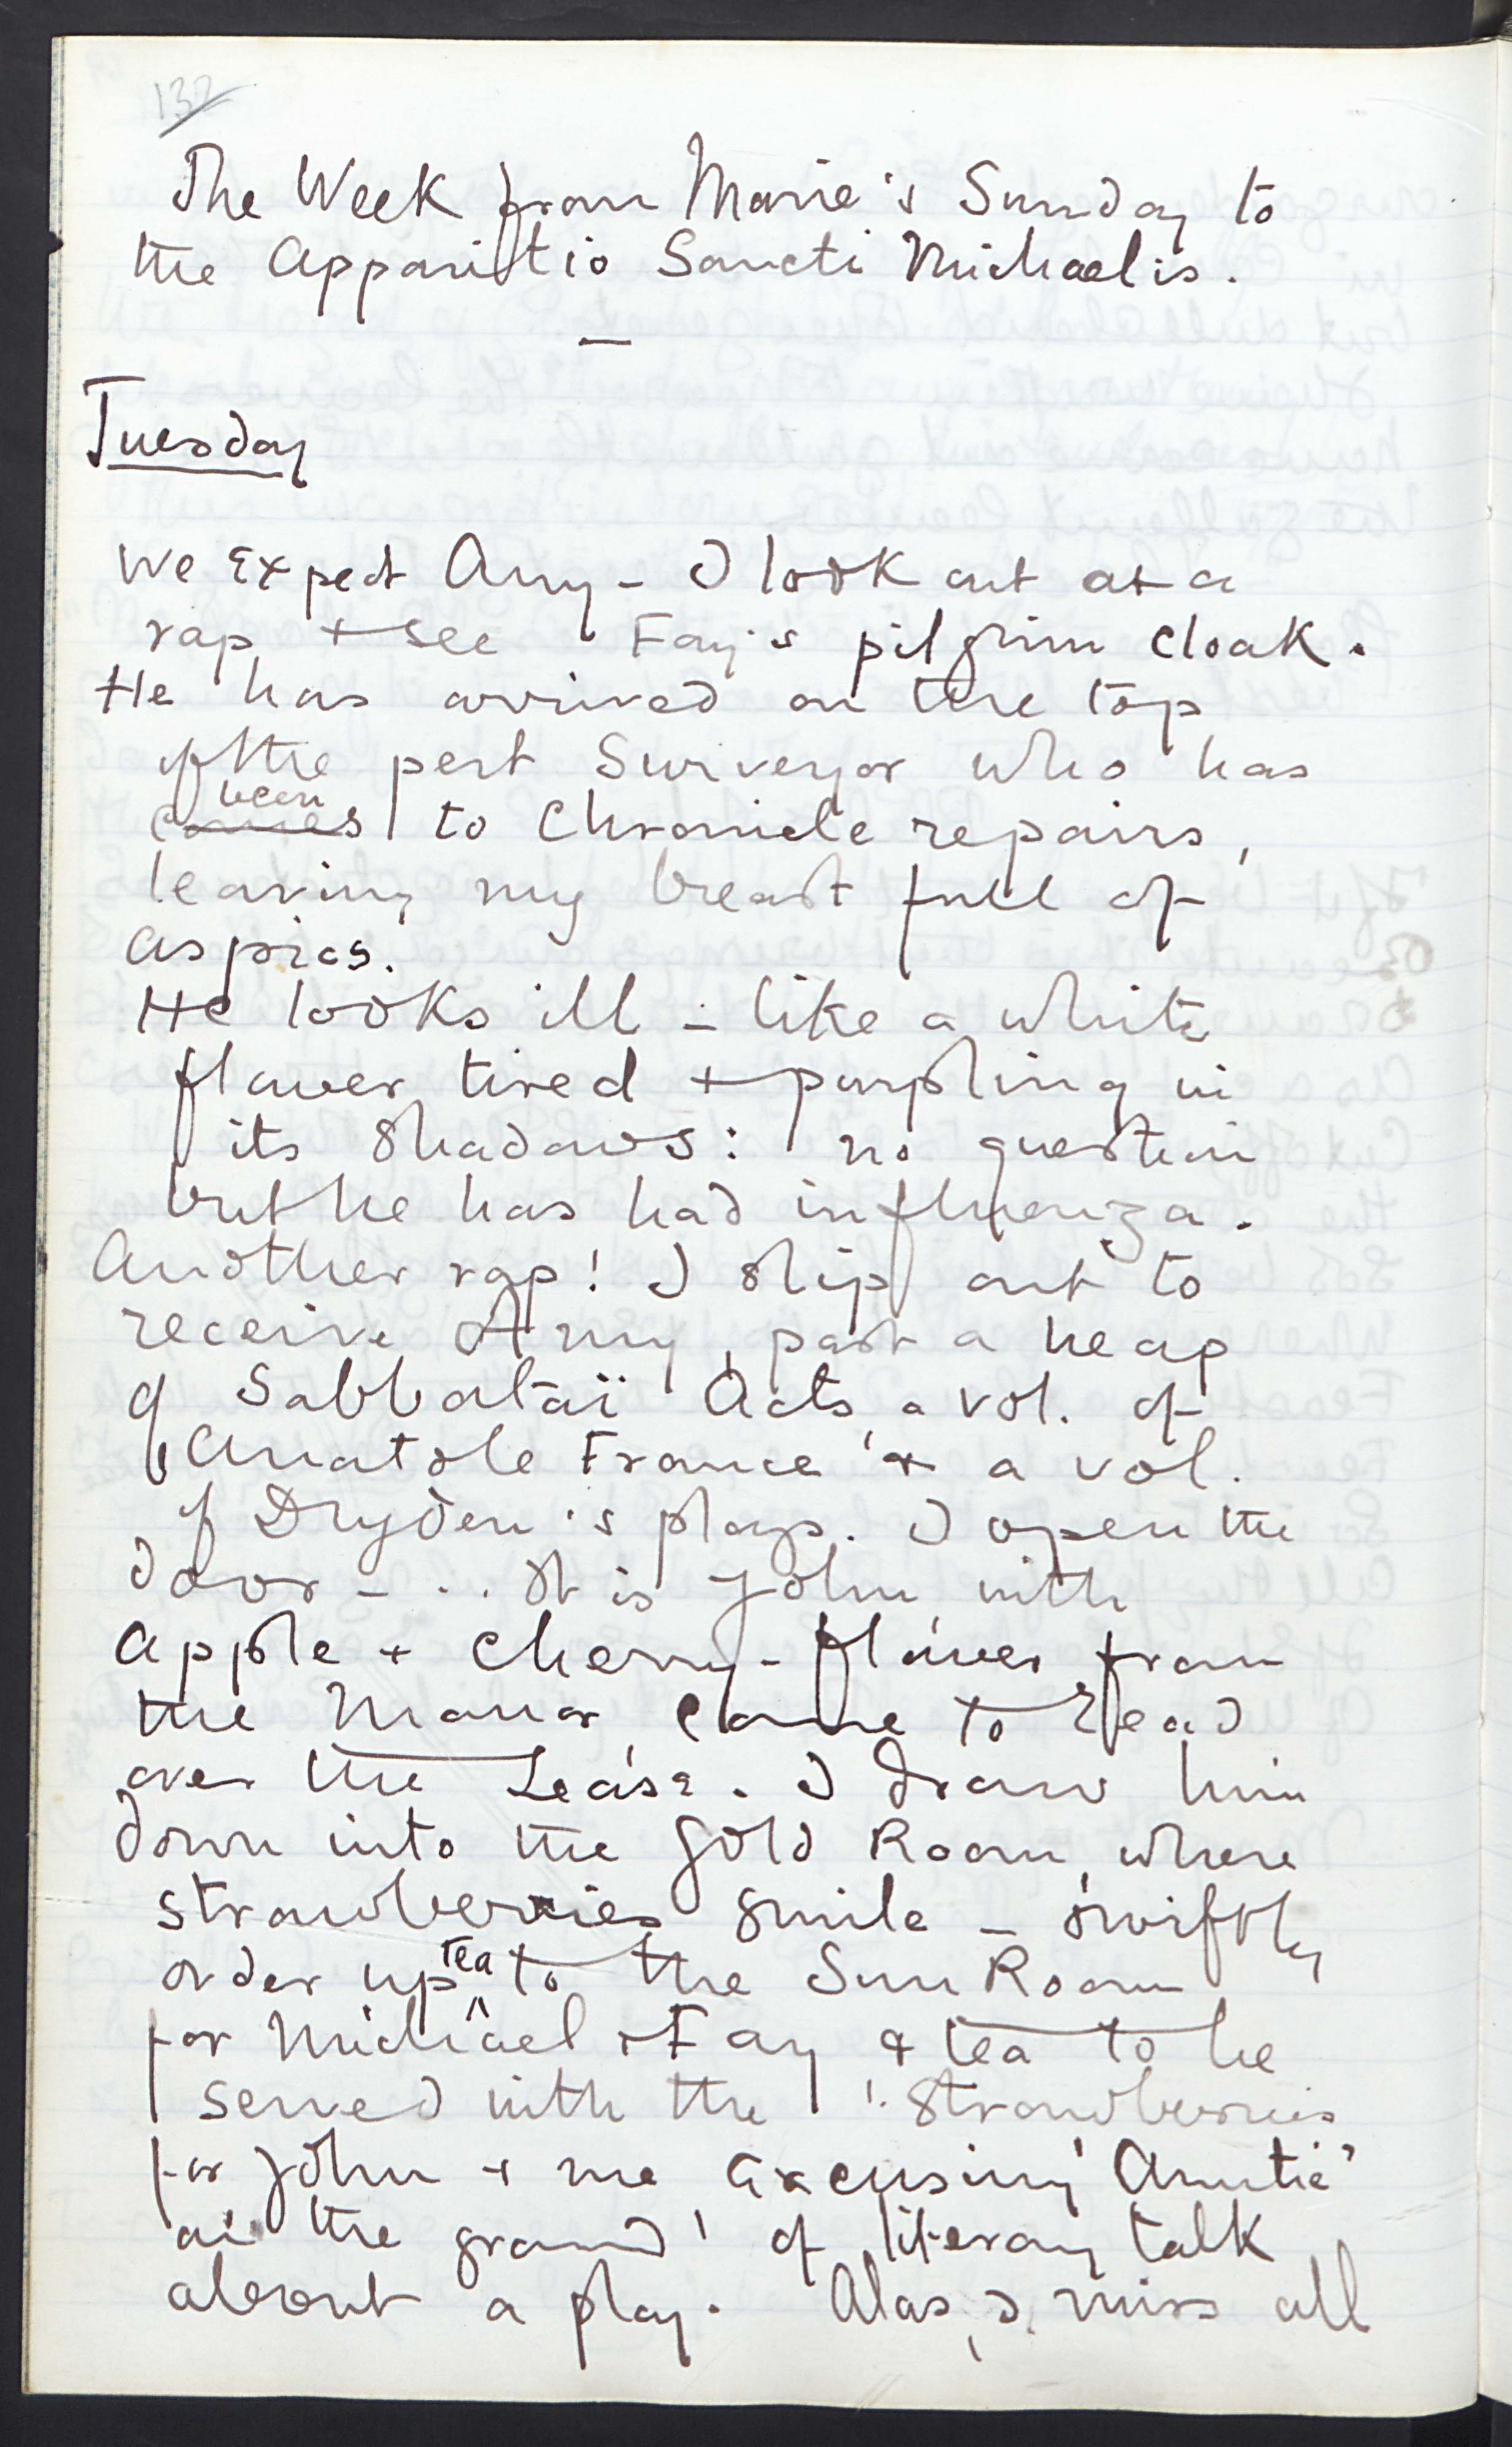 132
The Week from Marie's Sunday to
the Apparitio Sancti Michaelis.
—
Tuesday
We Expect Amy – I look out at a
rap + see Fay's pilgrim cloak.
He has arrived on the top
of the pert Surveyor who has
been
comes to Chronicle repairs,
leaving my breast full of
aspics.
He looks ill – like a white
flower tired + purpling in
its shadows: no question
but he has had influenza.
Another rap! I slip out to
receive Amy, past a heap
of Sabbataï Acts, a vol. of
Anatole France & a vol.
of Dryden's plays. I open the
door – . . It is John with
apple + cherry-flower from
the Manor, come to read
over the Lease. I draw him
down into the Gold Room, where
strawberries smile – swiftly
tea
order up ^ to the Sun Room
for Michael + Fay & tea to be
served with the strawberries
for John + me excusing 'Auntie'
on the ground of literary talk
about a play. Alas, I miss all